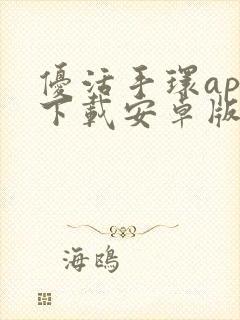 優活手環ap
下載安卓版
海鴎